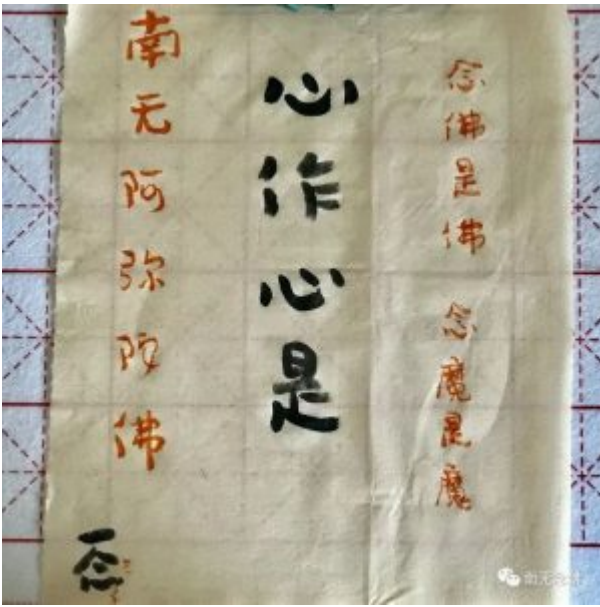 念佛是佛 念魔是魔
心作心是
南无阿弥陀佛
一念